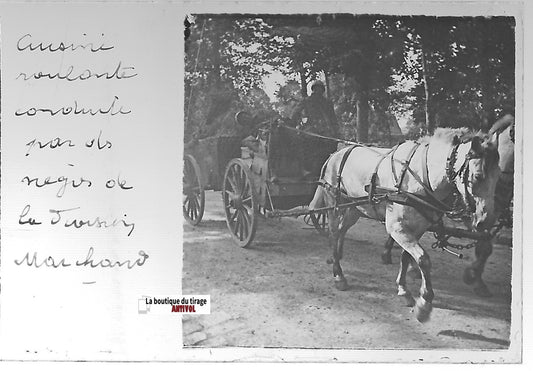 Cuisine
roulante
conduite
par des
nègres de
la Division
Marchand
la boutique du srigus
ANTIVOL